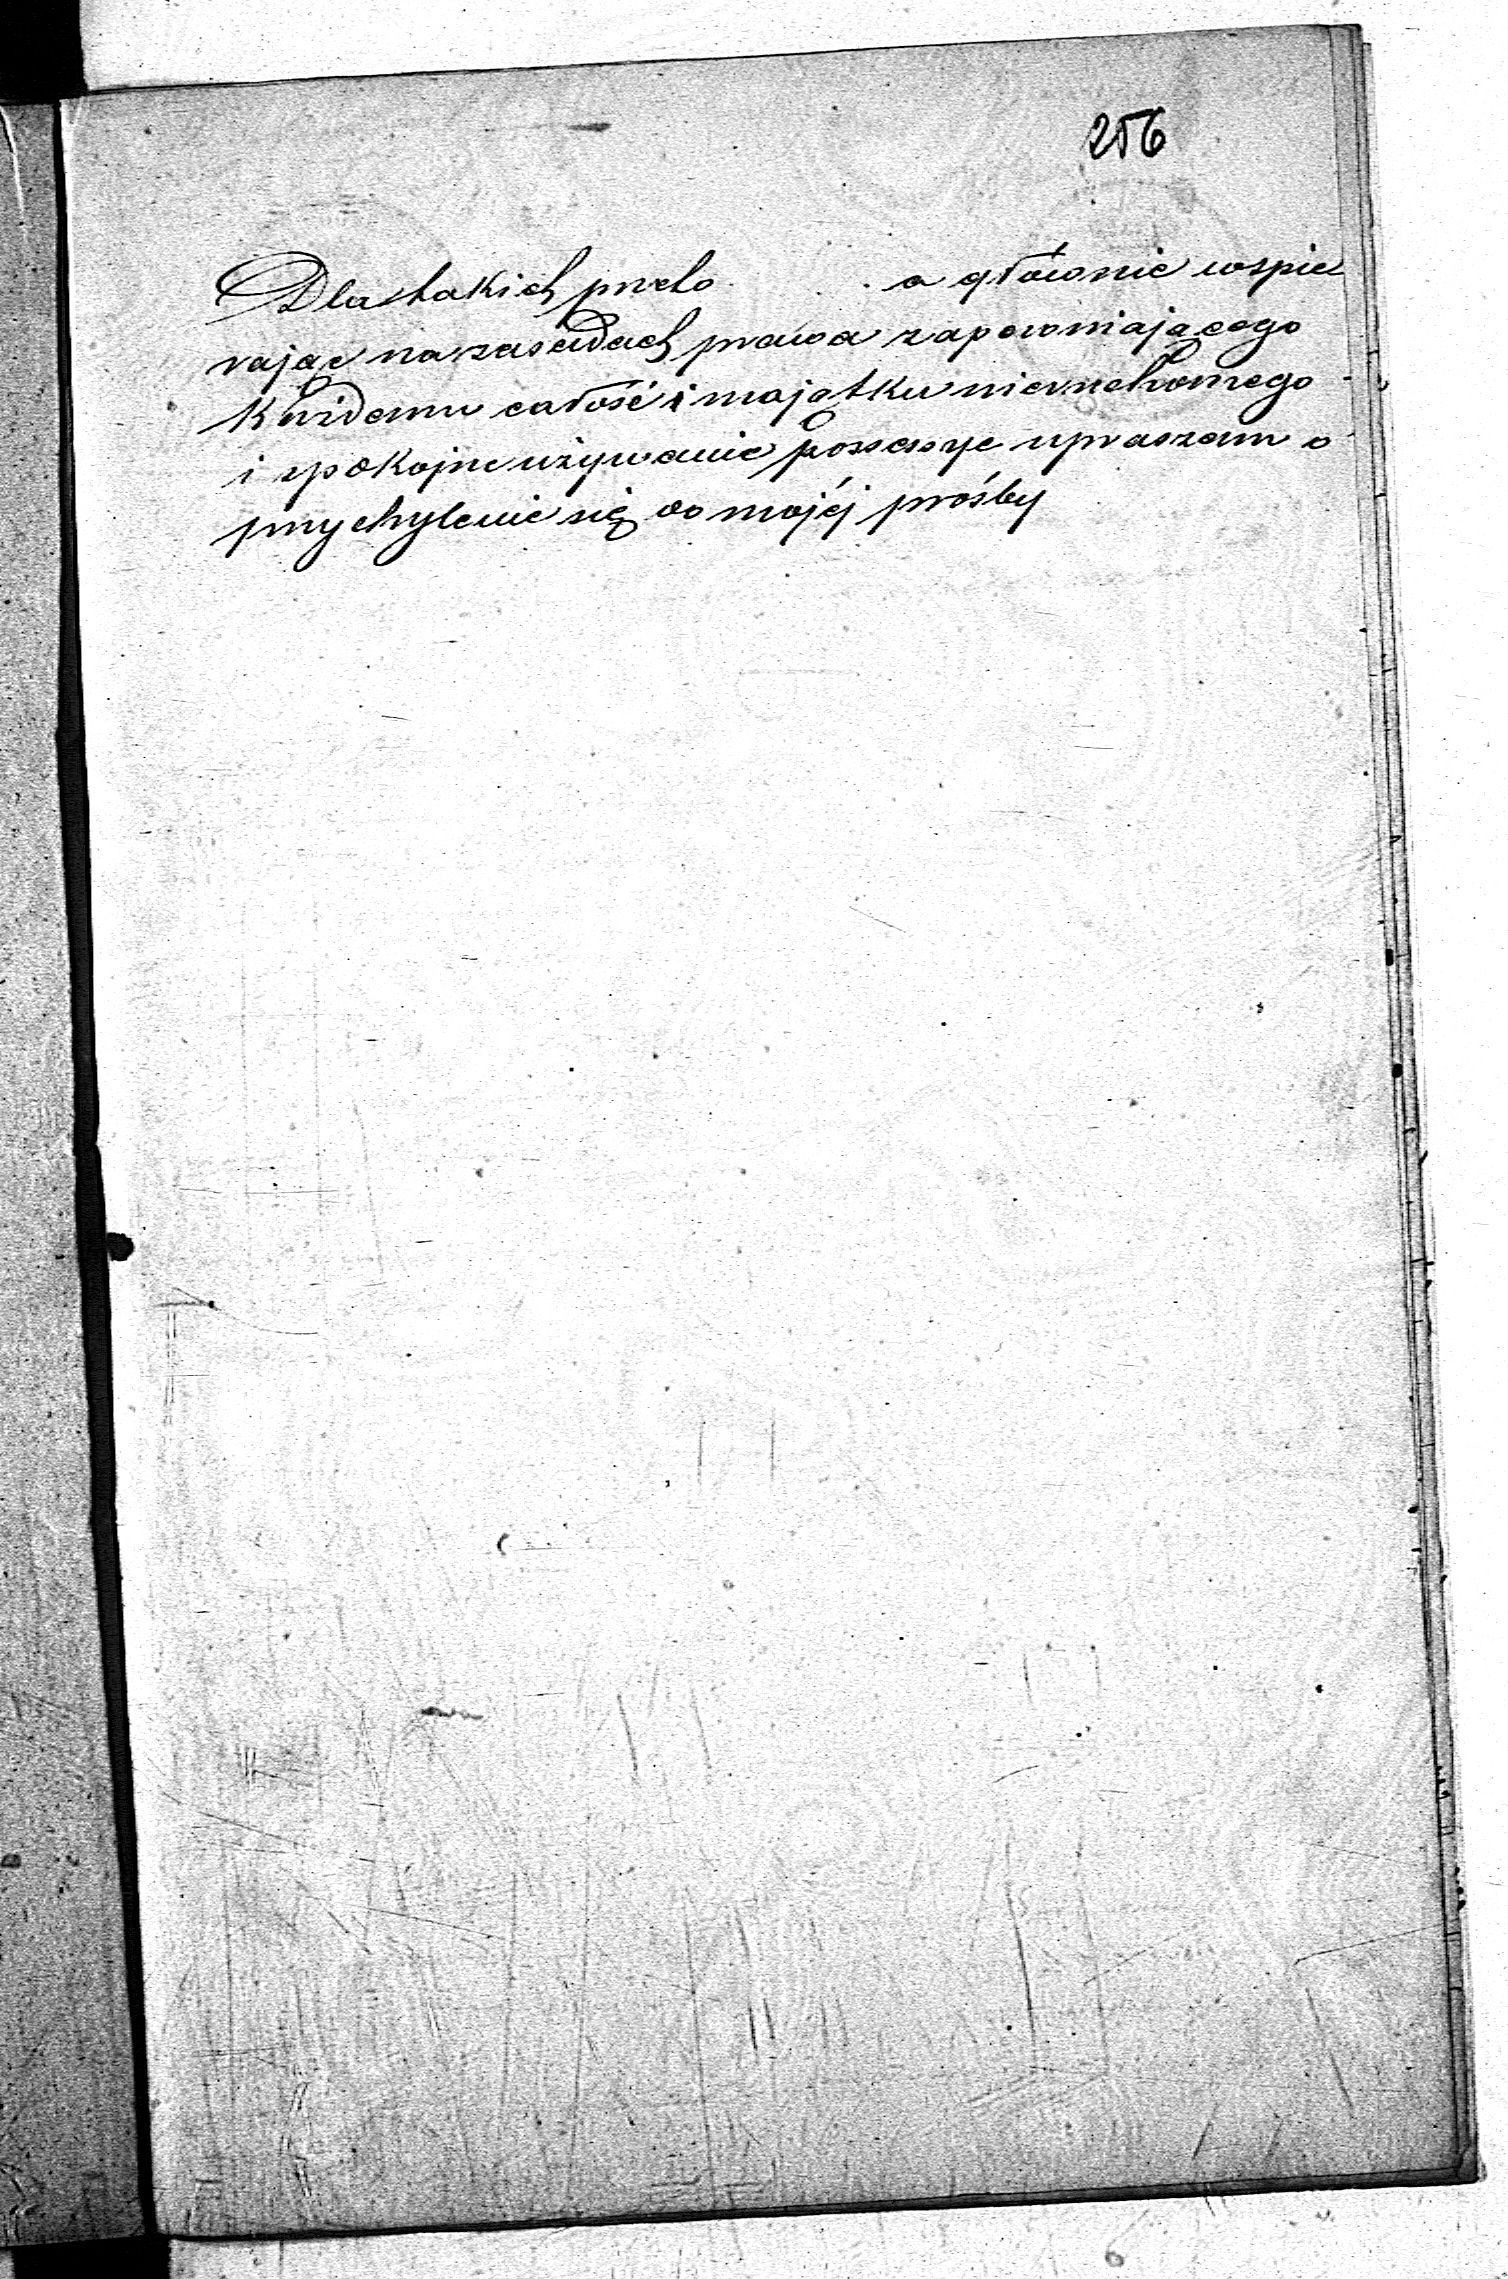 256
Dla takich przeto a głównie wspie
rając na zasadach prawa zapewniającego
każdemu całość i majątku nieruchomego
i spokojne używanie possessye upraszam o
przychylenie się do mojéj prośby